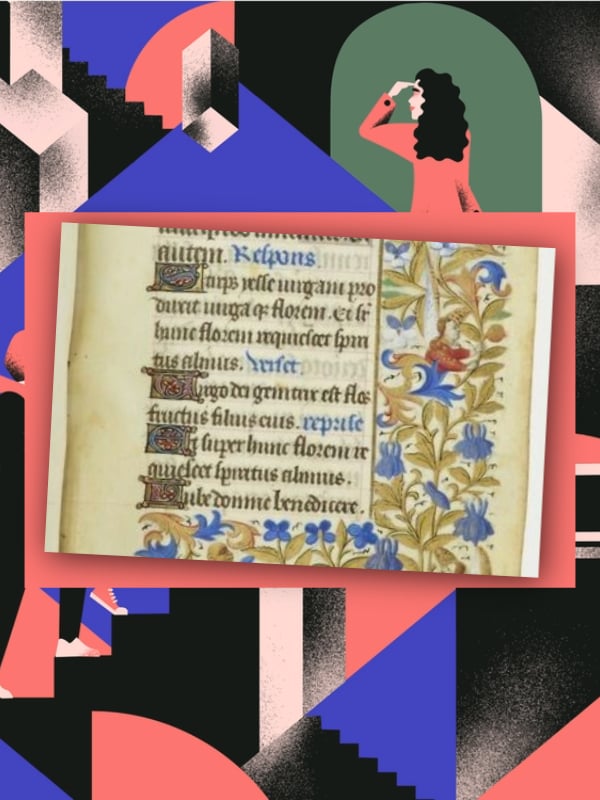 autem. Respons.
Stirps yesse uirgam pro
duxit uirga qz florem. Et sr
hunc florem requiescet spiri
tus almus. Verset
Virgo dei genitrix est flos
fructus filius eius. reprise
Et super hunc florem re
quiescet spiritus almus.
Iube domne benedicere.